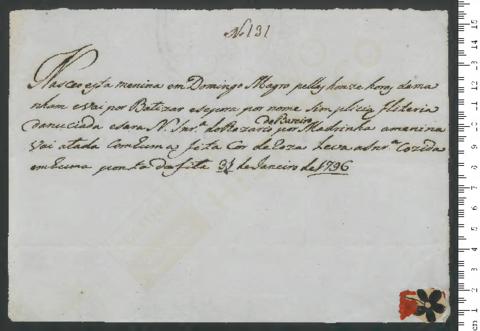 No 131
Nasceo esta menina em Domingo Magro pellas honze horas da ma
nham e vai por Batizar e se pora por nome Simplicia Eliteria
da nuciada e sera N. Snrª. do Rozario do Bareiro por Madrinha a menina
vai atada com huma feita Cor de Roza leva a dnrª Cozida
em huma ponta da fita 31 de Janeiro de 1796